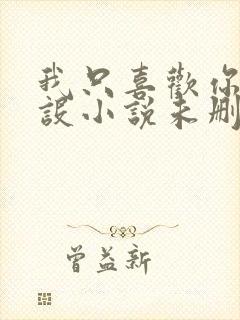 我只喜歡你
設小說未刪
曾益新